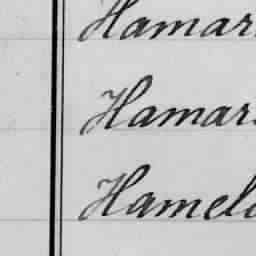 Hamar
Hamar
Hamel